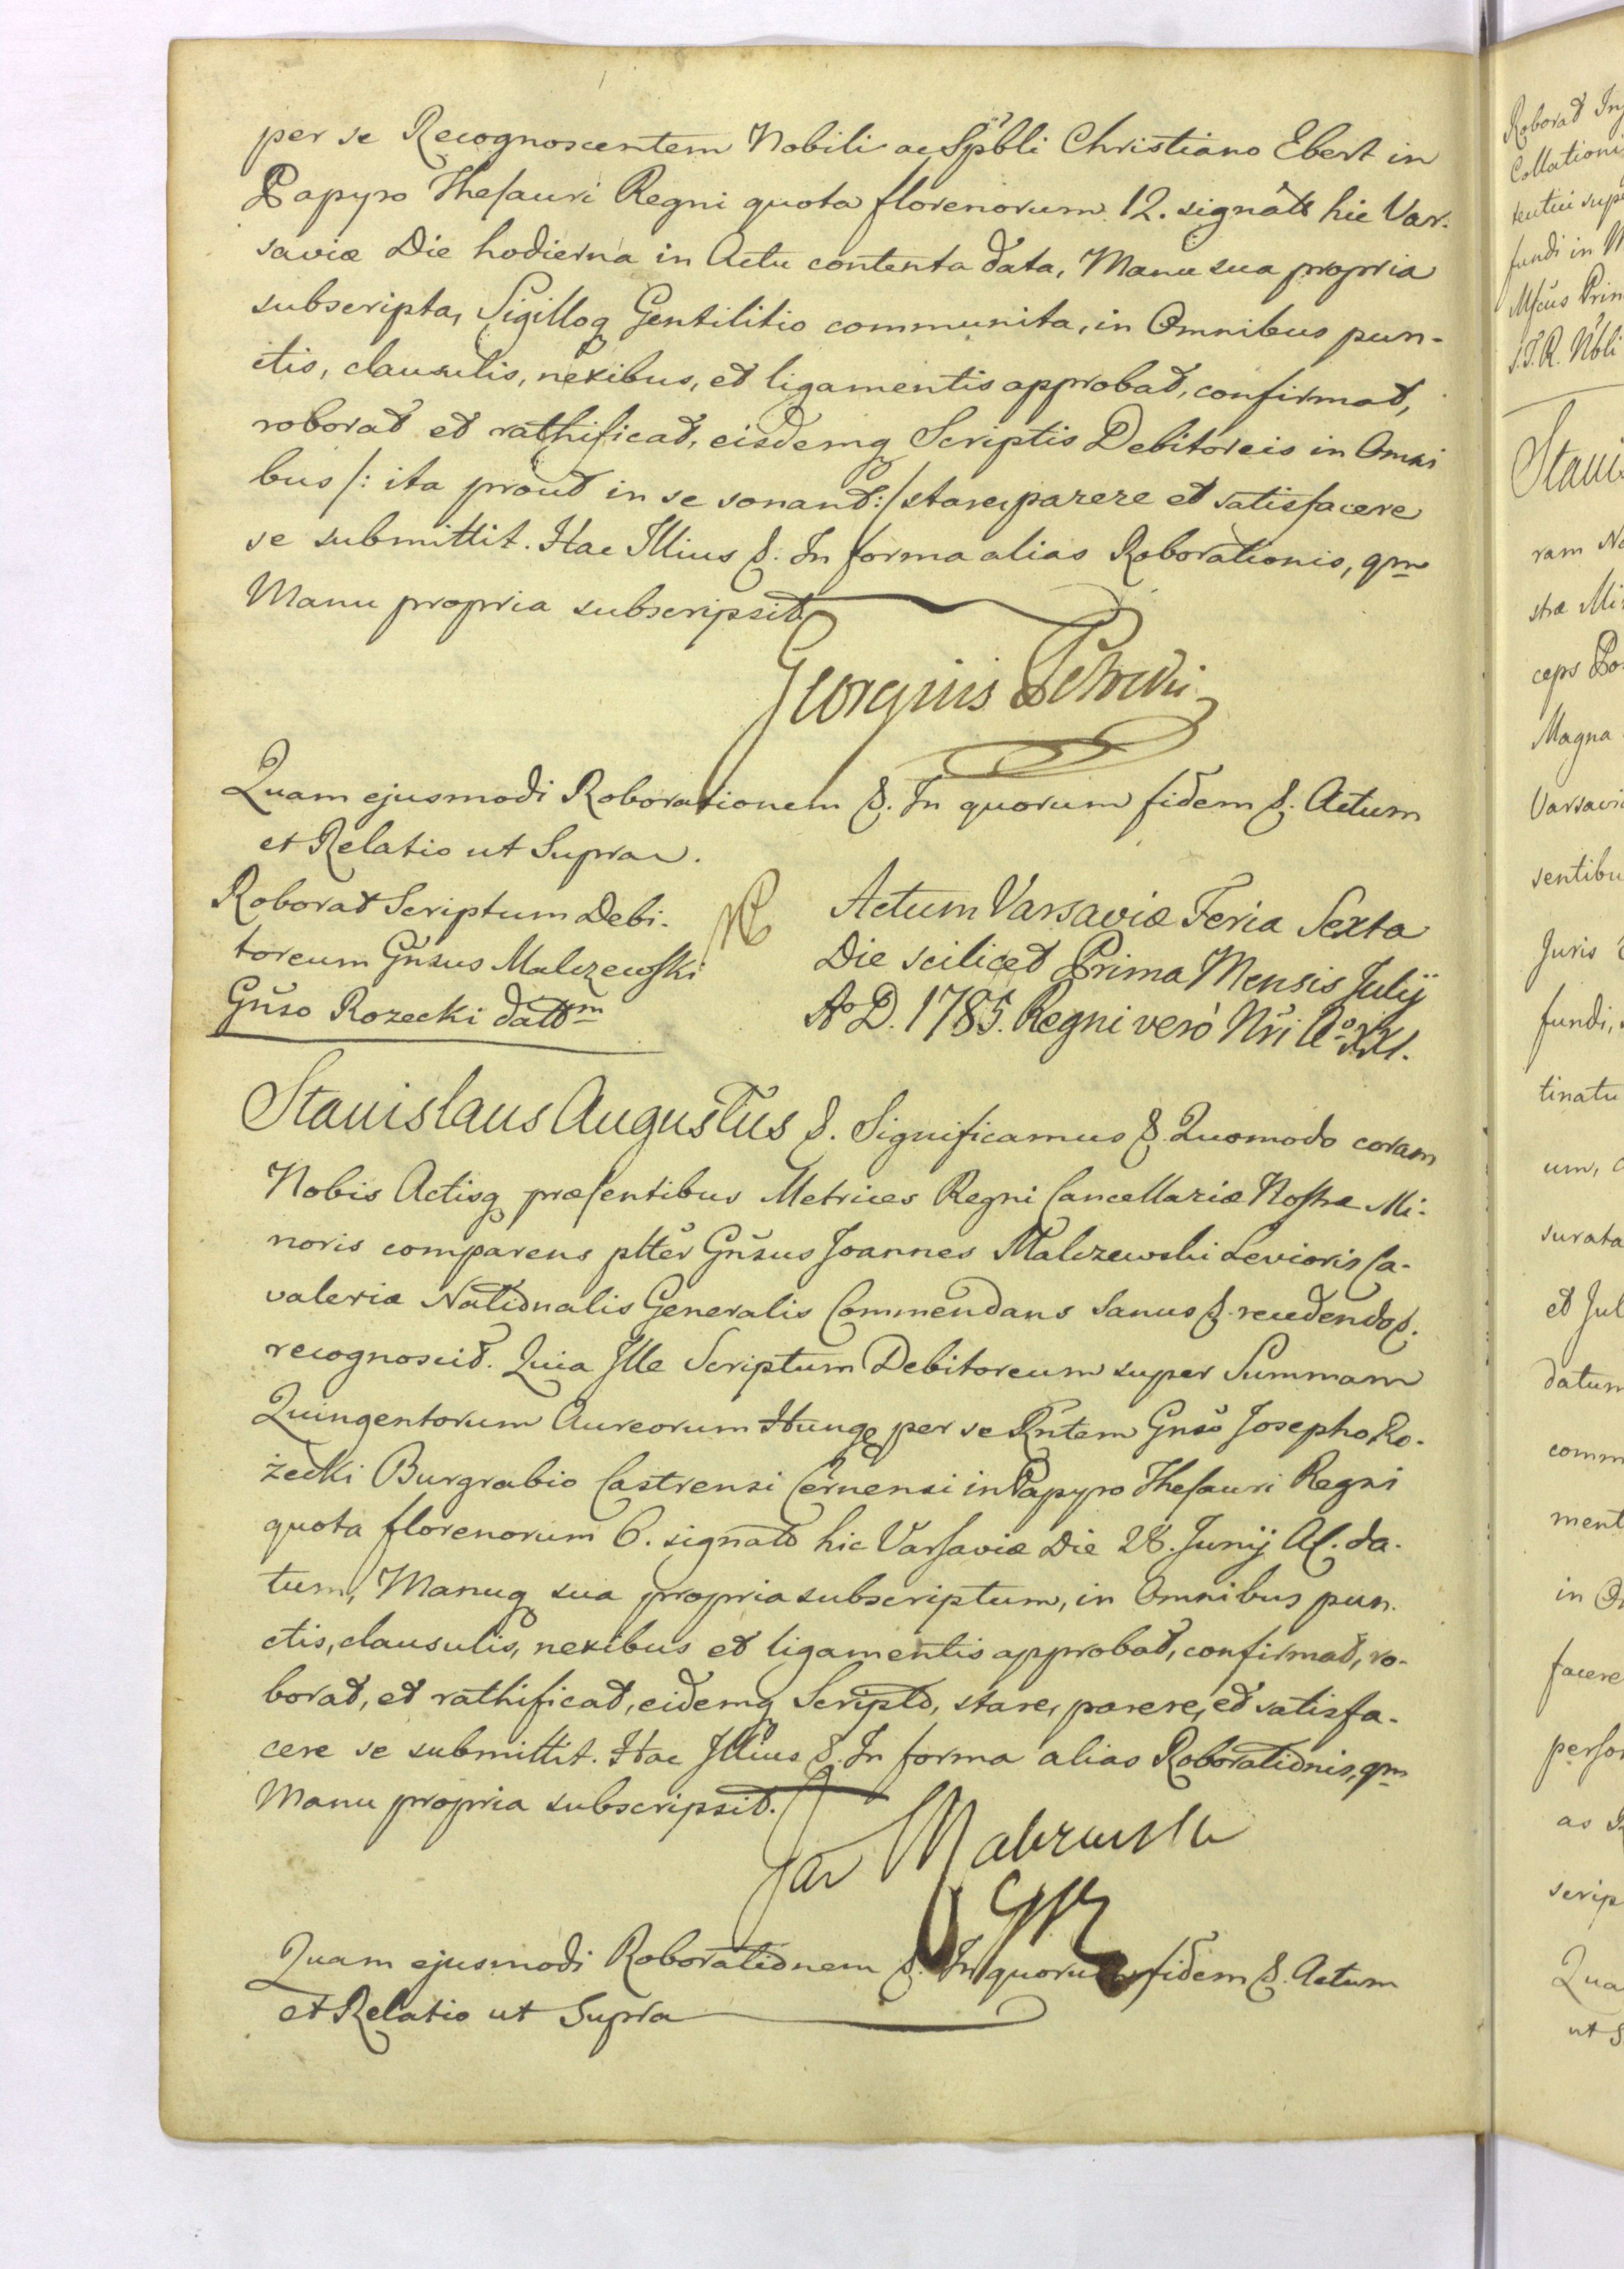 per se Recognoscentem Nobili ac Spbli Christiano Ebert in
Papyro Thesauri Regni quota florenorum 12. signât hic Var-
saviæ Die hodierna in Actu contenta data, Manu sua propria
subscripta, Sigilloq Gentilitio communita, in Omnibus pun-
ctis, clausulis, nexibus, et ligamentis approbat, confirmat,
roborat et rathificat, eisdemq Scriptis Debitoreis in Omni
bus /: ita prout in se sonant :/ stare, parere et satisfacere
se submittit. Hac Illius &. In forma alias Roborationis, qm
Manu propria subscripsit
Georgius
Quam ejusmodi Roborationem &. In quorum fidem &. Actum
et Relatio ut Supra.
Roborat Scriptum Debi-
toreum Gnsus Malczewski
Gnso Rozecki dattm
Actum Varsaviæ Feria Sexta
Die scilicet Prima Mensis Julij
Ao D. 1785. Regni verò Nri Ao XXI.
Stanislaus Augustus &. Significamus &. Quomodo coram
Nobis Actisq præsentibus Metrices Regni Cancellariæ Nostræ Mi-
noris comparens pltêr Gnsus Joannes Malczewski Levioris Ca-
valeriæ Nationalis Generalis Commendans Sanus &. recedendo &.
recognoscit. Quia Ille Scriptum Debitoreum super Summam
Quingentorum Aureorum Hungq per se Rntem Gnso Josepho Ro-
żecki Burgrabio Castrensi Cernensi in Papyro Thesauri Regni
quota florenorum 6. signato hic Varsaviæ Die 28. Junij A. C. da-
tum, Manuq sua propria subscriptum, in Omnibus pun-
ctis, clausulis, nexibus et ligamentis approbat, confirmat, ro-
borat, et rathificat, eidemq Scripto, stare, parere, et satisfa-
cere se submittit. Hac Illius &. In forma alias Roborationis, qm
Manu propria subscripsit.
Jan Malczewski
Quam ejusmodi Roborationem &. In quorum fidem &. Actum
et Relatio ut Supra
Stanis
ram
stræ Mi
ceps
Magna
Varsavi
sentibu
Juris
fundi,
tinatu
um,
surata
et Jul
datum
comm
ment
in
facere
person
as
scrip
Qua
ut S